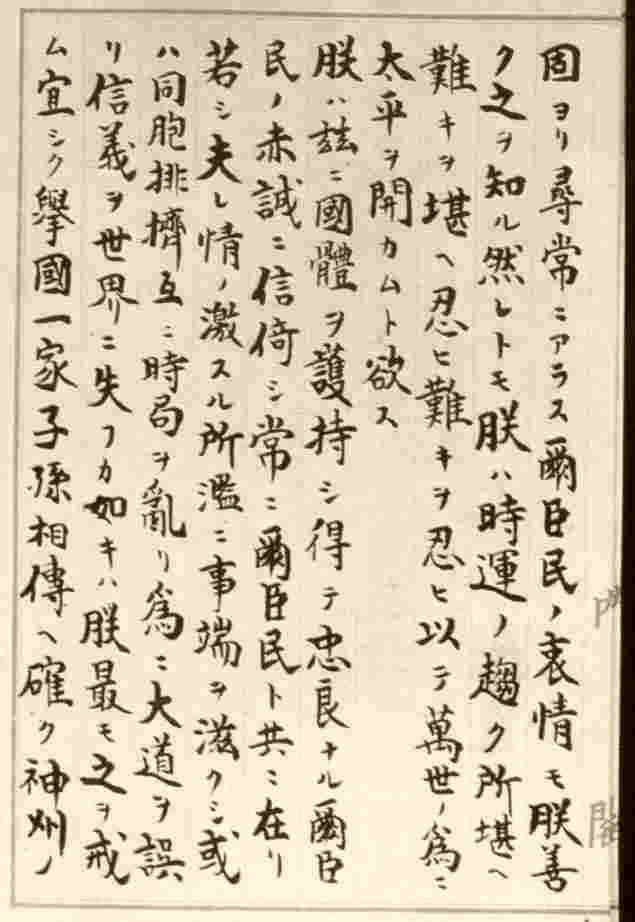 固ヨリ尋常ニアラス爾臣民ノ衷情モ朕善
ク之ヲ知ル然レトモ朕ハ時運ノ趨ク所堪ヘ
難キヲ堪ヘ忍ヒ難キヲ忍ヒ以テ萬世ノ爲ニ
太平ヲ開カムト欲ス
朕ハ玆ニ國體ヲ護持シ得テ忠良ナル爾臣
民ノ赤誠ニ信倚シ常ニ爾臣民ト共ニ在リ
若シ夫レ情ノ激スル所濫ニ事端ヲ滋クシ或
ハ同胞排擠互ニ時局ヲ亂リ爲ニ大道ヲ誤
リ信義ヲ世界ニ失フカ如キハ朕最モ之ヲ戒
ム宜シク擧國一家子孫相傳ヘ確ク神州ノ